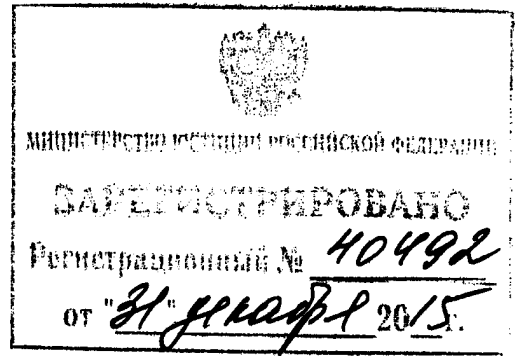 МИНИСТЕРСТВО ЮСТИЦИИ РОССИЙСКОЙ ФЕДЕРАЦИИ
ЗАРЕГИСТРИРОВАНО
Регистрационный № 40492
от "31" декабря 2015г.